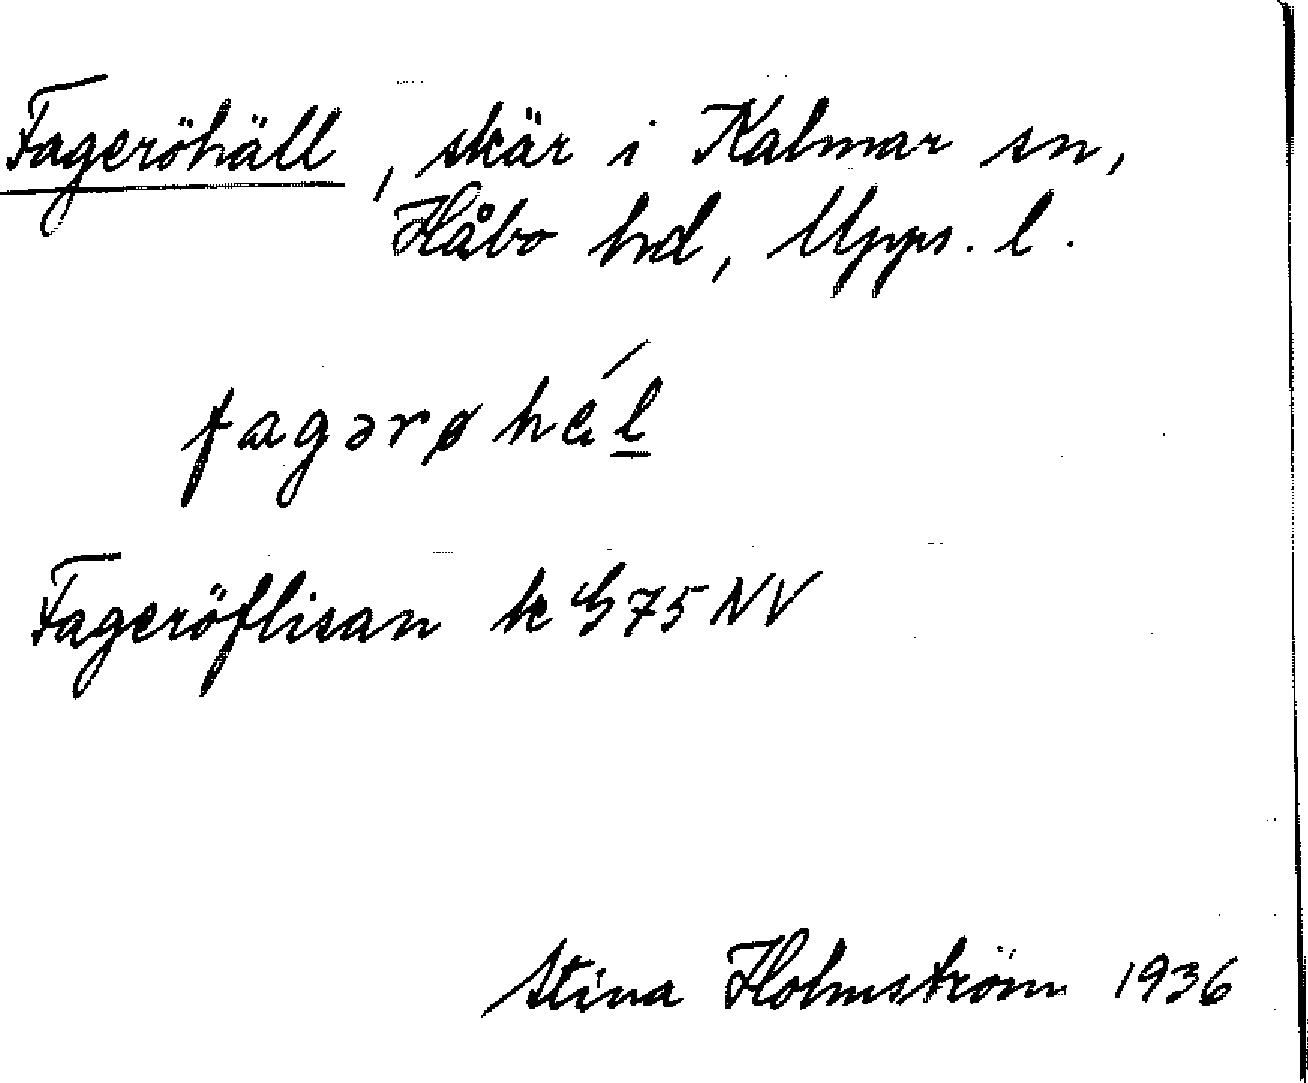 Fageröhäll, skär i Kalmar sn,
Håbo hd, Upps. l.
fagərøhę́l
Fageröflisan k G 75 NV
Stina Holmström 1936